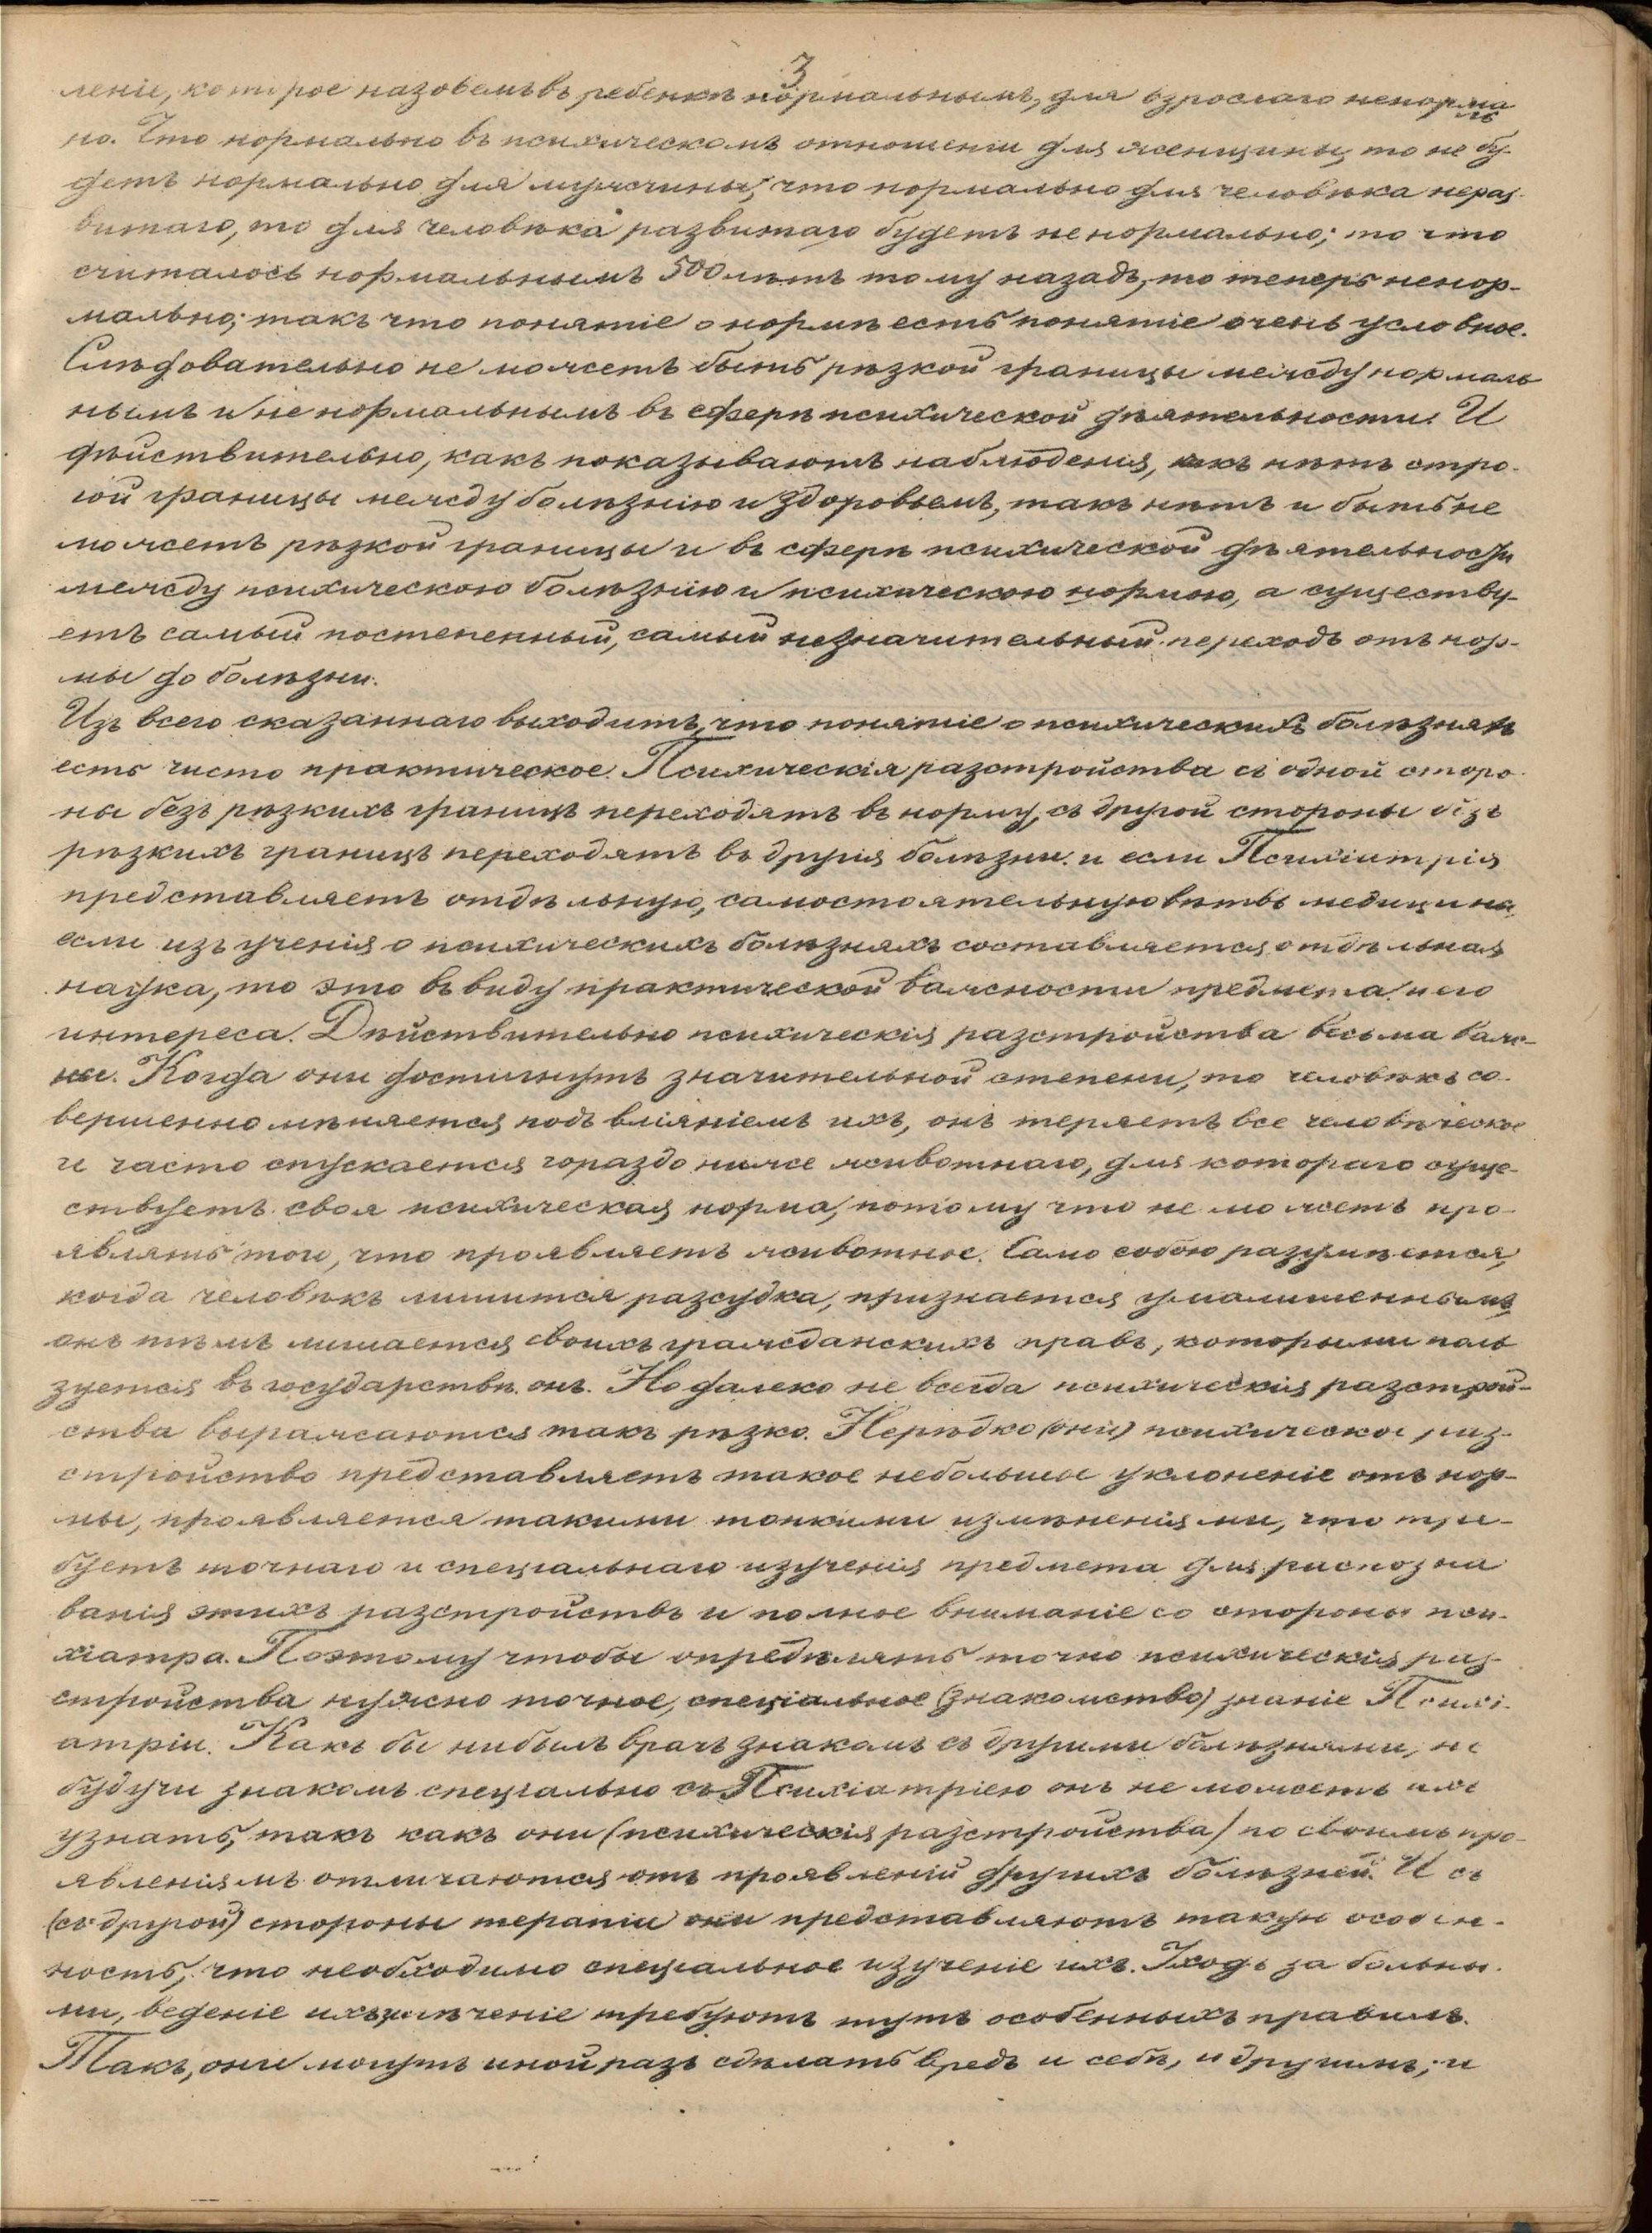 3
леніе, которое назовемъ въ ребенкѣ нормальнымъ, для взрослаго ненормаль
но. Что нормально въ психическомъ отношеніи для женщины, то не бу-
детъ нормально для мужчины; что нормально для человѣка нераз-
витаго, то для человѣка развитаго будетъ ненормально; то что
считалось нормальнымъ 500 лѣтъ тому назадъ, то теперь ненор-
мально; такъ что понятіе о нормѣ есть понятіе очень условное.
Слѣдовательно не можетъ быть рѣзкой границы между нормаль
нымъ и ненормальнымъ въ сферѣ психической дѣятельности. И
дѣйствительно, какъ показываютъ наблюденія, какъ нѣтъ стро-
гой границы между болѣзнію и здоровьемъ, такъ нѣтъ и быть не
можетъ рѣзкой границы и въ сферѣ психической дѣятельности
между психическою болѣзнію и психическою нормою, а существу-
етъ самый постепенный, самый незначительный переходъ отъ нор-
мы до болѣзни.
Изъ всего сказаннаго выходитъ, что понятіе о психическихъ болѣзняхъ
есть чисто практическое. Психическія разстройства съ одной сторо-
ны безъ рѣзкихъ границъ переходятъ въ норму, съ другой стороны безъ
рѣзкихъ границъ переходятъ въ другія болѣзни. и если Психіатрія
представляетъ отдѣльную, самостоятельную вѣтвь медицины,
если изъ ученія о психическихъ болѣзняхъ составляется отдѣльная
наука, то это въ виду практической важности предмета и его
интереса. Дѣйствительно психическія разстройства весьма важ-
ны. Когда они достигнутъ значительной степени, то человѣкъ со-
вершенно мѣняется подъ вліяніемъ ихъ, онъ теряетъ все человѣческое
и часто спускается гораздо ниже животнаго, для котораго суще-
ствуетъ своя психическая норма, потому что не можетъ про-
являть того, что проявляетъ животное. Само собою разумѣется,
когда человѣкъ лишится разсудка, признается умалишеннымъ,
онъ тѣмъ лишается своихъ гражданскихъ правъ, которыми поль
зуется въ государствѣ онъ. Но далеко не всегда психическія разстрой-
ства выражаются такъ рѣзко. Нерѣдко (они) психическое раз-
стройство представляетъ такое небольшое уклоненіе отъ нор-
мы, проявляется такими тонкими измѣненіями, что тре-
буетъ точнаго и спеціальнаго изученія предмета для распозна
ванія этихъ разстройствъ и полное вниманіе со стороны пси-
хіатра. Поэтому чтобы опредѣлять точно психическія раз-
стройства нужно точное, спеціальное (знакомство) знаніе Психі-
атріи. Какъ бы ни былъ врачъ знакомъ съ другими болѣзнями, не
будучи знакомъ спеціально съ Психіатріею онъ не можетъ ихъ
узнать, такъ какъ они (психическія разстройства) по своимъ про-
явленіямъ отличаются отъ проявленій другихъ болѣзней. И съ
(съ другой) стороны терапіи они представляютъ такую особен-
ность, что необходимо спеціальное изученіе ихъ. Уходъ за больны-
ми, веденіе ихъ, леченіе требуютъ тутъ особенныхъ правилъ.
Такъ, они могутъ иной разъ сдѣлать вредъ и себѣ, и другимъ; и